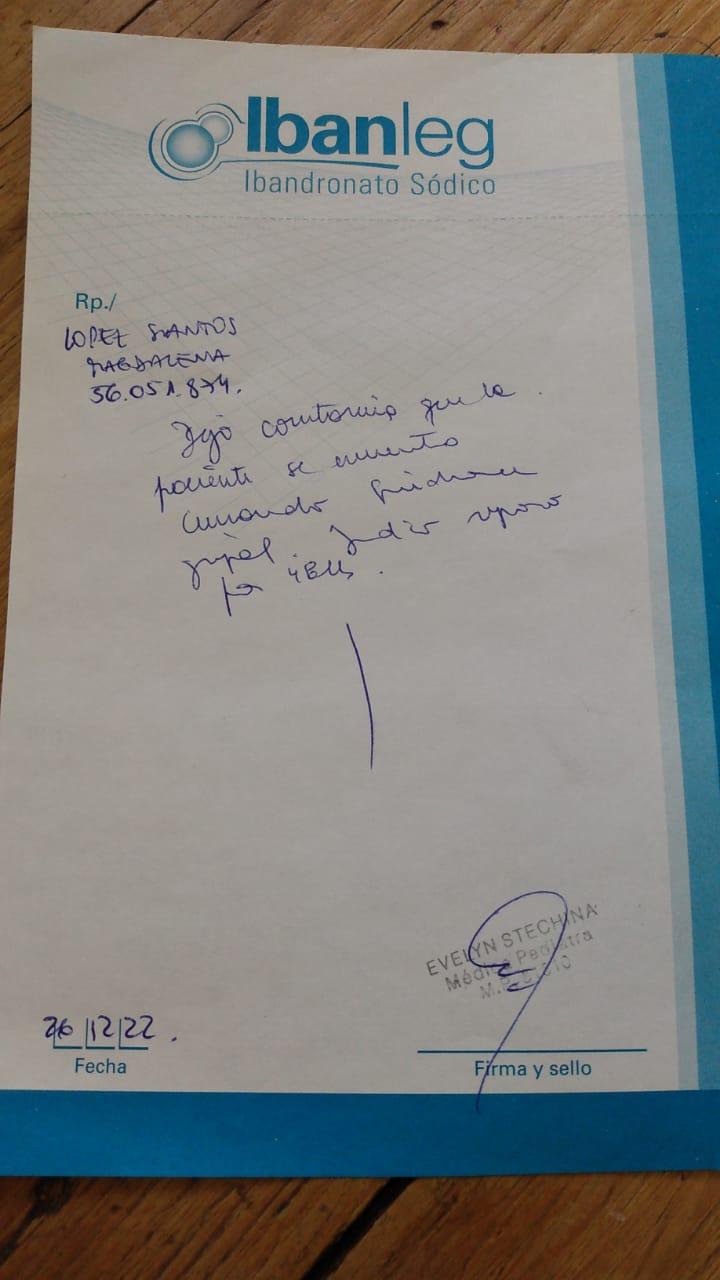 Ibanleg
Ibandronato Sódico
Rp./
LOPEZ SANTOS
MAGDALENA
56.051.874.
Dejo constancia que la
paciente se encuentra
cursando síndrome
gripal. Indico reposo
por 48hs.
EVELYN STECHINA
Médica Pediatra
M.P.
26 12 22.
Fecha
Firma y sello